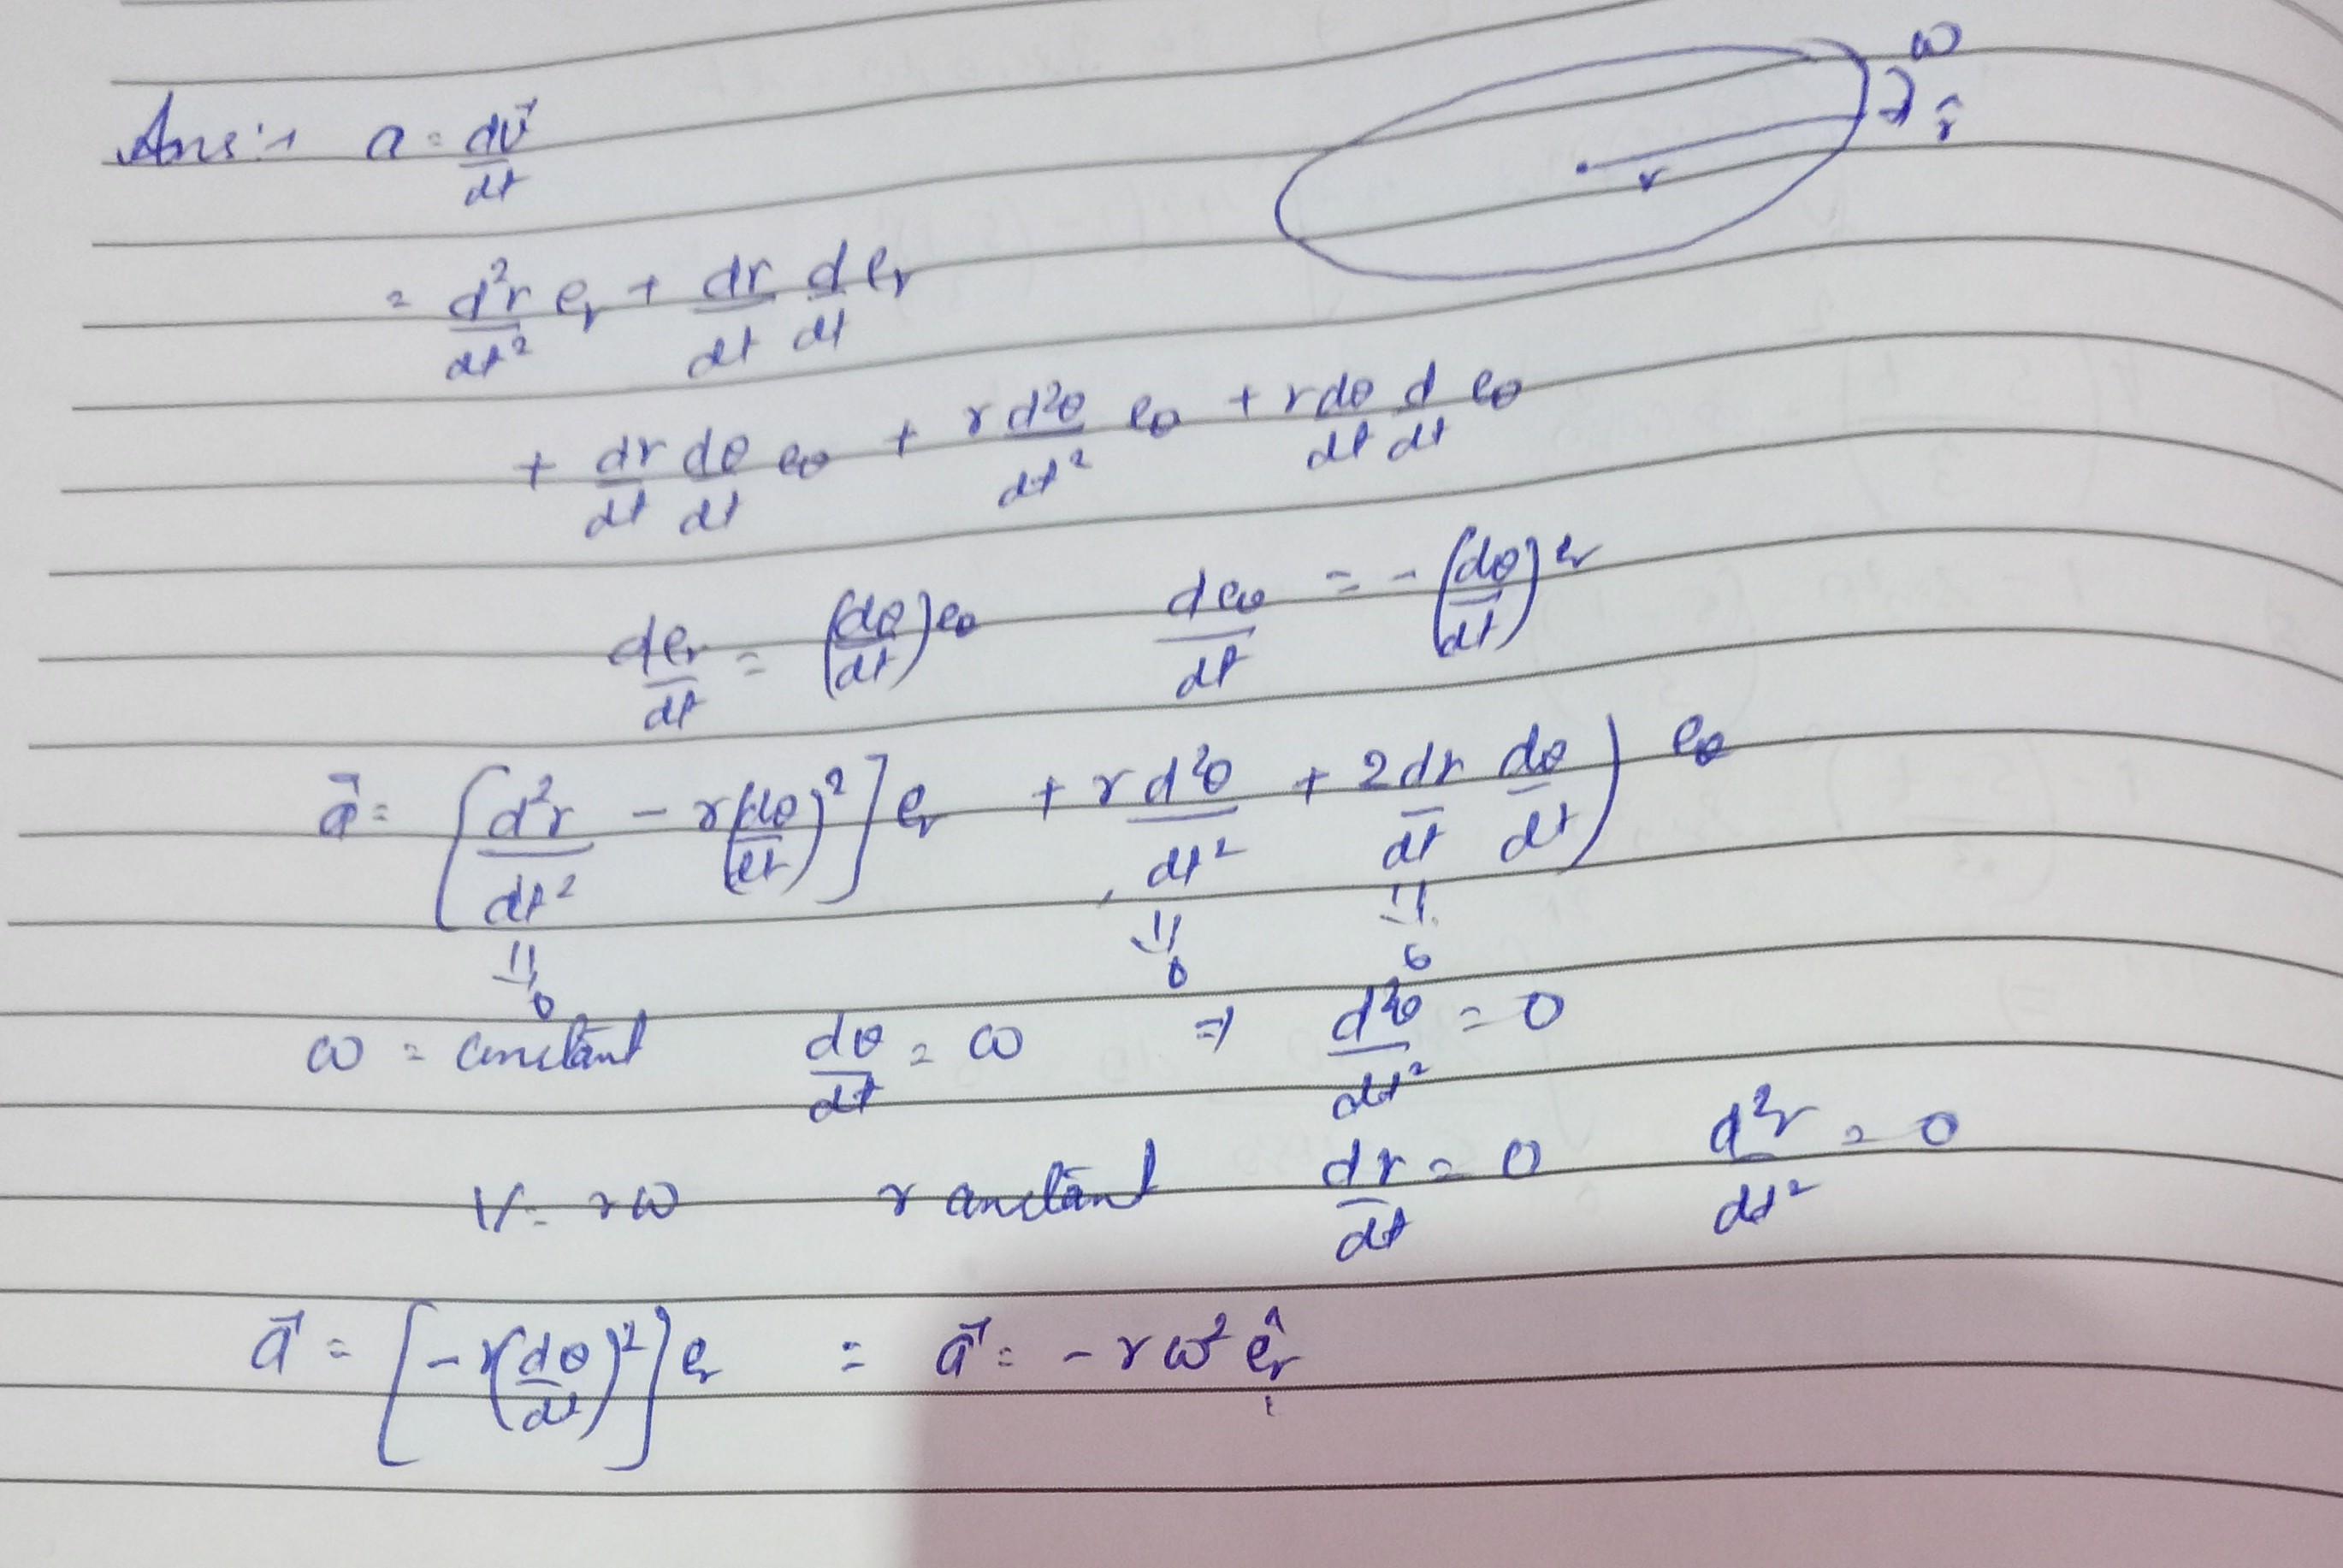 Ans:→ a = dv⃗/dt
ω
r̂
r
= d²r/dt² eᵣ + dr/dt d/dt eᵣ
+ dr/dt dθ/dt eθ + r d²θ/dt² eθ + r dθ/dt d/dt eθ
deᵣ/dt = (dθ/dt) eθ deθ/dt = -(dθ/dt) eᵣ
a⃗ = [d²r/dt² - r(dθ/dt)²] eᵣ + r d²θ/dt² + 2 dr/dt dθ/dt) eθ
= 0 = 0 = 0
ω = constant dθ/dt = ω ⇒ d²θ/dt² = 0
V = rω r constant dr/dt = 0 d²r/dt² = 0
a⃗ = [-r(dθ/dt)²] eᵣ = a⃗ = -rω² êᵣ